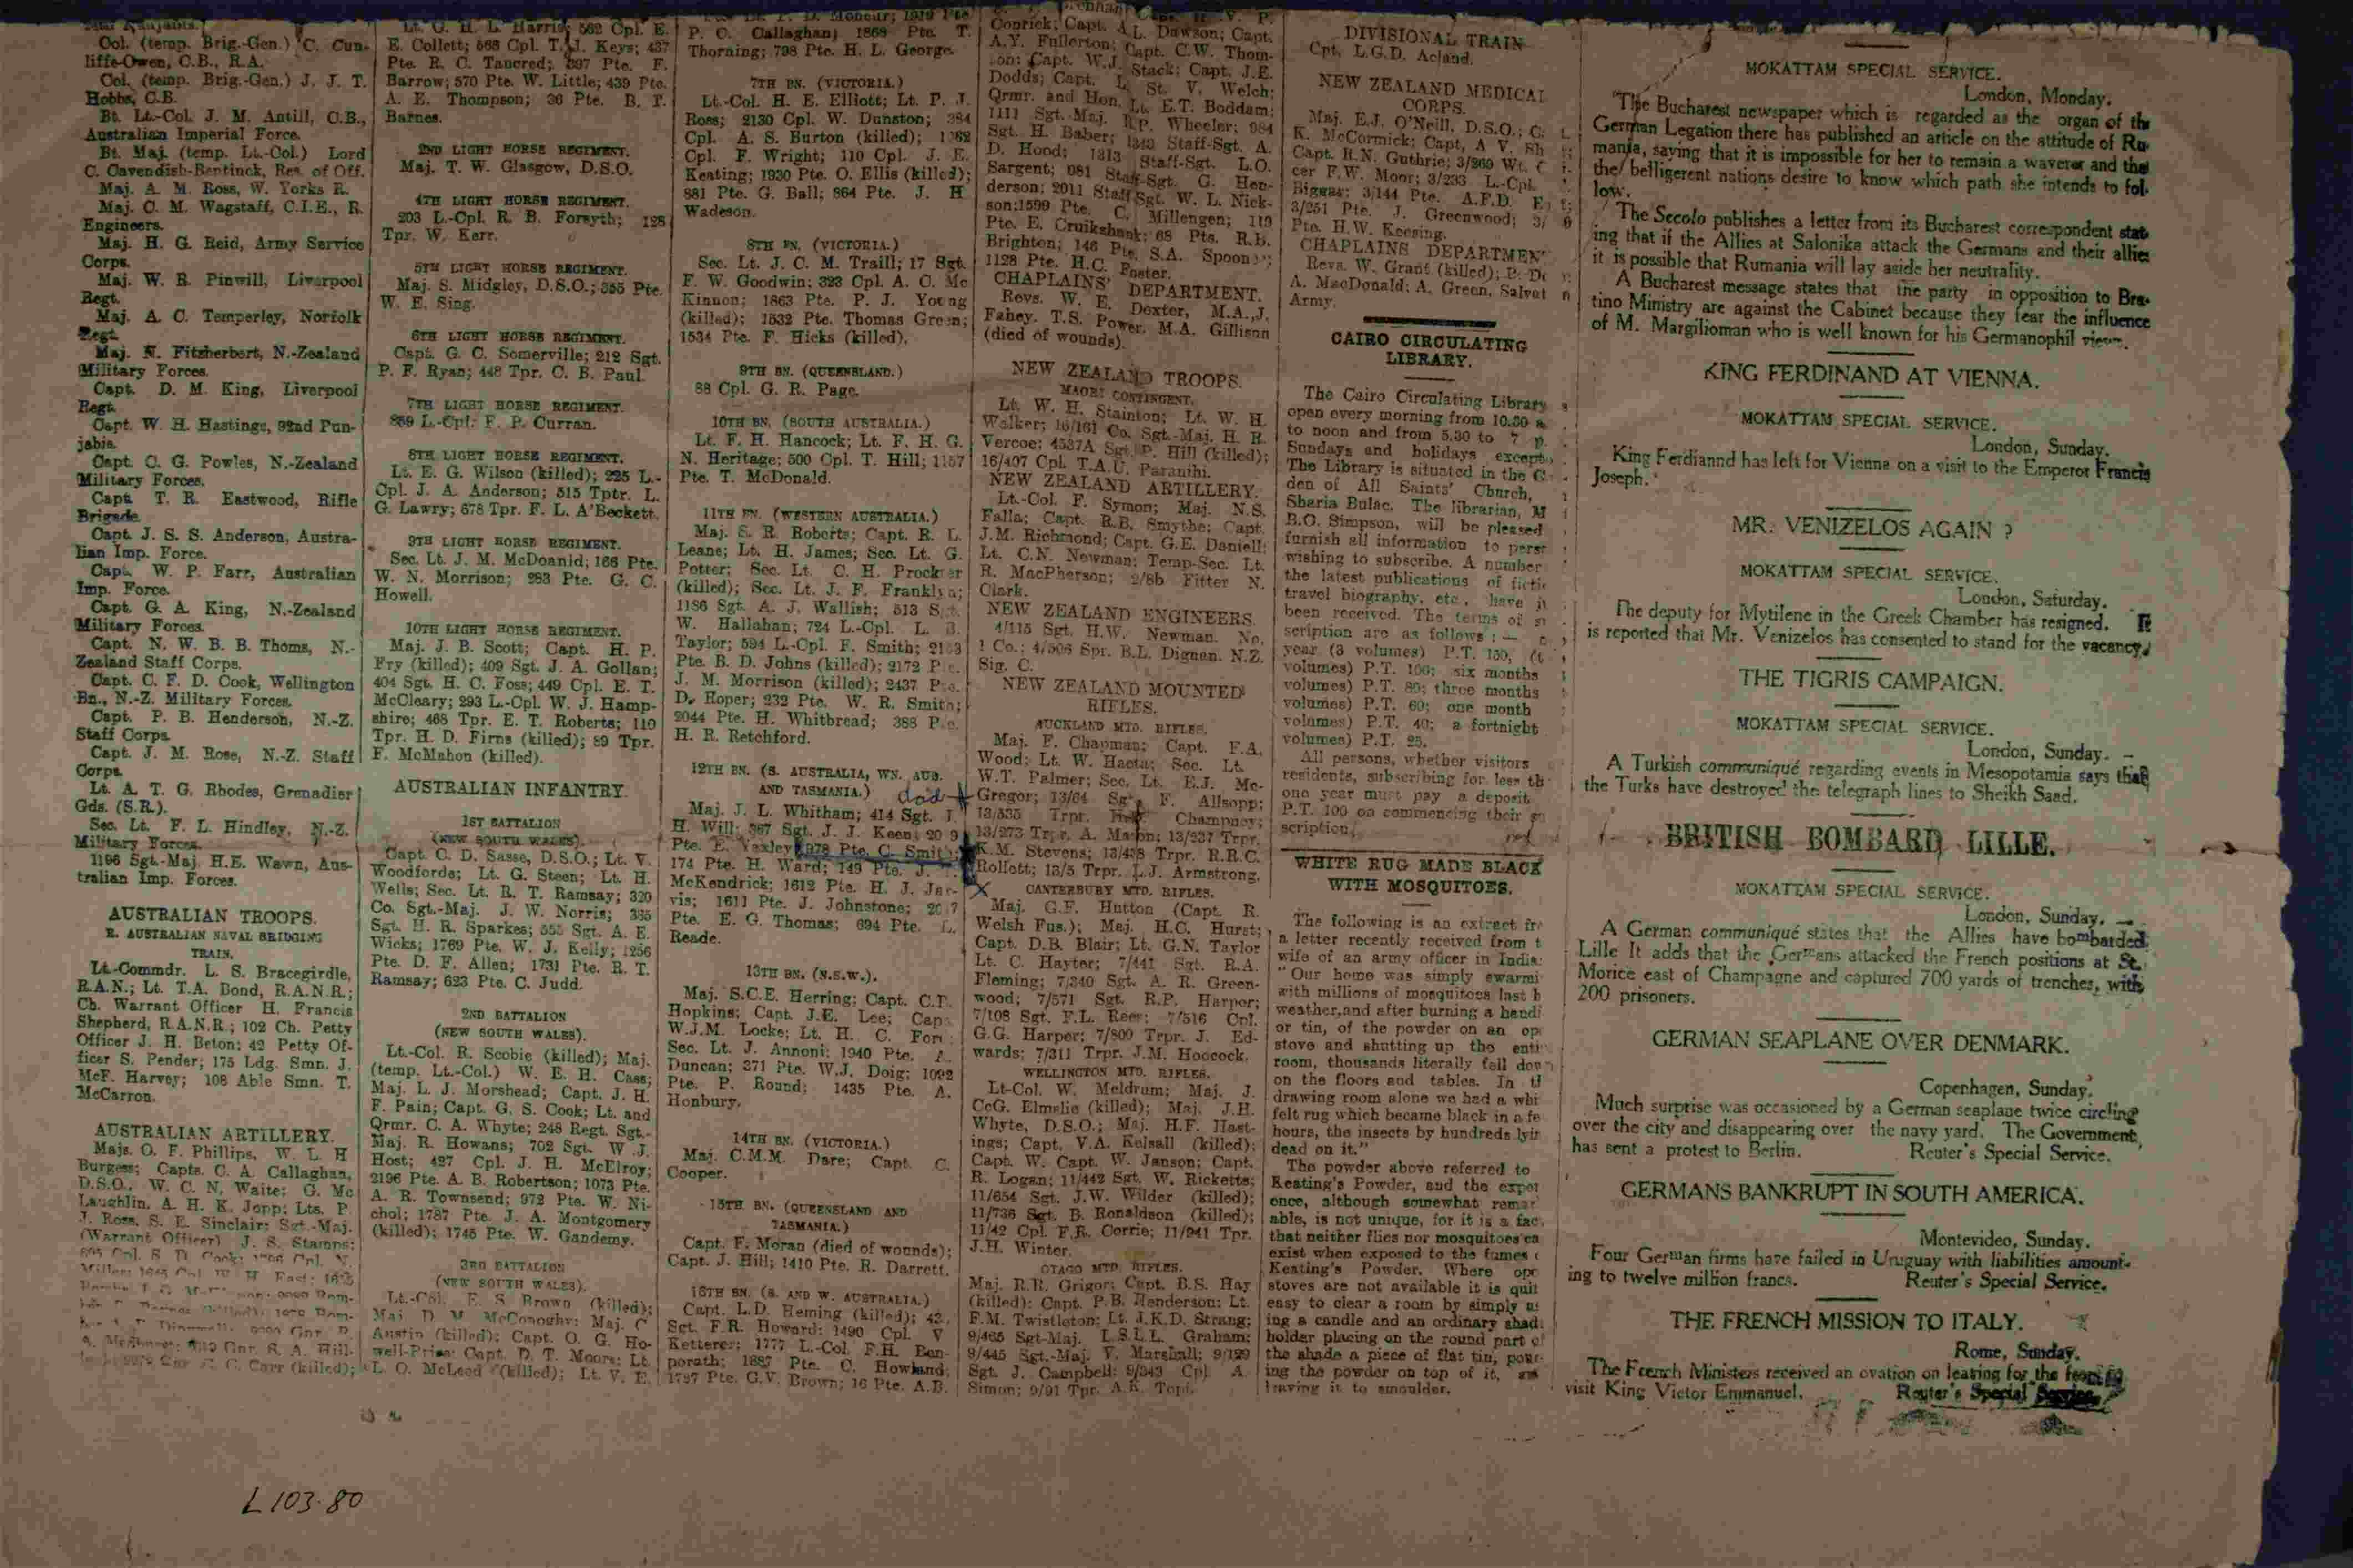 Col. (temp. Brig.-Gen.) C. Cun-
liffe-Owen, C.B., R.A.
Col. (temp. Brig.-Gen.) J. J. T.
Hobbs, C.B.
Bt. Lt.-Col. J. M. Antill, C.B.,
Australian Imperial Force.
Bt. Maj. (temp. Lt.-Col.) Lord
C. Cavendish-Bentinck, Res. of Off.
Maj. A. M. Ross, W. Yorks R.
Maj. C. M. Wagstaff, C.I.E., R.
Engineers.
Maj. H. G. Reid, Army Service
Corps.
Maj. W. R. Pinwill, Liverpool
Regt.
Maj. A. C. Temperley, Norfolk
Regt.
Maj. N. Fitzherbert, N.-Zealand
Military Forces.
Capt. D. M. King, Liverpool
Regt.
Capt. W. H. Hastings, 92nd Pun-
jabis.
Capt. C. G. Powles, N.-Zealand
Military Forces.
Capt. T. R. Eastwood, Rifle
Brigade.
Capt. J. S. S. Anderson, Austra-
lian Imp. Force.
Capt. W. P. Farr, Australian
Imp. Force.
Capt. G. A. King, N.-Zealand
Military Forces.
Capt. N. W. B. B. Thoms, N.-
Zealand Staff Corps.
Capt. C. F. D. Cook, Wellington
Bn., N.-Z. Military Forces.
Capt. P. B. Henderson, N.-Z.
Staff Corps.
Capt. J. M. Rose, N.-Z. Staff
Corps.
Lt. A. T. G. Rhodes, Grenadier
Gds. (S.R.).
Sec. Lt. F. L. Hindley, N.-Z.
Military Forces.
1196 Sgt.-Maj. H.E. Wawn, Aus-
tralian Imp. Forces.
AUSTRALIAN TROOPS.
R. AUSTRALIAN NAVAL BRIDGING
TRAIN.
Lt.-Commdr. L. S. Bracegirdle,
R.A.N.; Lt. T.A. Bond, R.A.N.R.;
Ch. Warrant Officer H. Francis
Shepherd, R.A.N.R.; 102 Ch. Petty
Officer J. H. Beton; 42 Petty Of-
ficer S. Pender; 175 Ldg. Smn. J.
McF. Harvey; 108 Able Smn. T.
McCarron.
AUSTRALIAN ARTILLERY.
Majs. O. F. Phillips, W. L. H
Burgess; Capts. C. A. Callaghan,
D.S.O., W. C. N. Waite; G. Mc
Laughlin, A. H. K. Jopp; Lts. P.
J. Ross, S. E. Sinclair; Sgt.-Maj.
(Warrant Officer) J. S. Stamps;
Lt. G. H. L. Harris; 562 Cpl. E.
E. Collett; 568 Cpl. T. J. Keys; 437
Pte. R. C. Tancred; 597 Pte. F.
Barrow; 570 Pte. W. Little; 439 Pte.
A. E. Thompson; 36 Pte. B. T.
Barnes.
2ND LIGHT HORSE REGIMENT.
Maj. T. W. Glasgow, D.S.O.
4TH LIGHT HORSE REGIMENT.
203 L.-Cpl. R. B. Forsyth; 128
Tpr. W. Kerr.
5TH LIGHT HORSE REGIMENT.
Maj. S. Midgley, D.S.O.; 355 Pte.
W. E. Sing.
6TH LIGHT HORSE REGIMENT.
Capt. G. C. Somerville; 212 Sgt.
P. F. Ryan; 448 Tpr. C. B. Paul.
7TH LIGHT HORSE REGIMENT.
859 L.-Cpl. F. P. Curran.
8TH LIGHT HORSE REGIMENT.
Lt. E. G. Wilson (killed); 225 L.-
Cpl. J. A. Anderson; 515 Tptr. L.
G. Lawry; 678 Tpr. F. L. A'Beckett.
9TH LIGHT HORSE REGIMENT.
Sec. Lt. J. M. McDoanid; 166 Pte.
W. N. Morrison; 283 Pte. G. C.
Howell.
10TH LIGHT HORSE REGIMENT.
Maj. J. B. Scott; Capt. H. P.
Fry (killed); 409 Sgt. J. A. Gollan;
404 Sgt. H. C. Foss; 449 Cpl. E. T.
McCleary; 293 L.-Cpl. W. J. Hamp-
shire; 468 Tpr. E. T. Roberts; 110
Tpr. H. D. Firns (killed); 89 Tpr.
F. McMahon (killed).
AUSTRALIAN INFANTRY.
1ST BATTALION
(NEW SOUTH WALES).
Capt. C. D. Sasse, D.S.O.; Lt. V.
Woodforde; Lt. G. Steen; Lt. H.
Wells; Sec. Lt. R. T. Ramsay; 320
Co. Sgt.-Maj. J. W. Norris; 385
Sgt. H. R. Sparkes; 555 Sgt. A. E.
Wicks; 1769 Pte. W. J. Kelly; 1256
Pte. D. F. Allen; 1731 Pte. R. T.
Ramsay; 623 Pte. C. Judd.
2ND BATTALION
(NEW SOUTH WALES).
Lt.-Col. R. Scobie (killed); Maj.
(temp. Lt.-Col.) W. E. H. Cass;
Maj. L. J. Morshead; Capt. J. H.
F. Pain; Capt. G. S. Cook; Lt. and
Qrmr. C. A. Whyte; 248 Regt. Sgt.-
Maj. R. Howans; 702 Sgt. W. J.
Host; 427 Cpl. J. H. McElroy;
2196 Pte. A. B. Robertson; 1073 Pte.
A. R. Townsend; 972 Pte. W. Ni-
chol; 1787 Pte. J. A. Montgomery
(killed); 1745 Pte. W. Gandemy.
3RD BATTALION
(NEW SOUTH WALES).
Lt.-Col. E. S. Brown (killed);
Maj. D. M. McConoghy; Maj. C
Austin (killed); Capt. O. G. Ho-
well-Price; Capt. D. T. Moore; Lt.
L. O. McLeod (killed); Lt. V. E.
P. C. Callaghan; 1868 Pte. T.
Thorning; 798 Pte. H. L. George.
7TH BN. (VICTORIA.)
Lt.-Col. H. E. Elliott; Lt. P. J.
Ross; 2130 Cpl. W. Dunston; 384
Cpl. A. S. Burton (killed); 1062
Cpl. F. Wright; 110 Cpl. J. E.
Keating; 1930 Pte. O. Ellis (killed);
881 Pte. G. Ball; 864 Pte. J. H
Wadeson.
8TH BN. (VICTORIA.)
Sec. Lt. J. C. M. Traill; 17 Sgt.
F. W. Goodwin; 323 Cpl. A. C. Mc
Kinnon; 1863 Pte. P. J. Young
(killed); 1532 Pte. Thomas Green;
1534 Pte. F. Hicks (killed).
9TH BN. (QUEENSLAND.)
88 Cpl. G. R. Page.
10TH BN. (SOUTH AUSTRALIA.)
Lt. F. H. Hancock; Lt. F. H. G.
N. Heritage; 500 Cpl. T. Hill; 1157
Pte. T. McDonald.
11TH BN. (WESTERN AUSTRALIA.)
Maj. S. R. Roberts; Capt. R. L.
Leane; Lt. H. James; Sec. Lt. G.
Potter; Sec. Lt. C. H. Procker
(killed); Sec. Lt. J. F. Franklyn;
1186 Sgt. A. J. Wallish; 513 Sgt.
W. Hallahan; 724 L.-Cpl. L. B.
Taylor; 594 L.-Cpl. F. Smith;
Pte. B. D. Johns (killed); 2172 Pte.
J. M. Morrison (killed); 2437 Pte.
D. Roper; 232 Pte. W. R. Smith;
2044 Pte. H. Whitbread; 388 Pte.
H. R. Retchford.
12TH BN. (S. AUSTRALIA, WN. AUS.
AND TASMANIA.) dad
Maj. J. L. Whitham; 414 Sgt. J.
H. Will; 867 Sgt. J. J. Keen;
Pte. E. Yaxley; 978 Pte. C. Smith;
174 Pte. H. Ward; 149 Pte. J.
McKendrick; 1612 Pte. H. J. Jar-
vis; 1611 Pte. J. Johnstone;
Pte. E. G. Thomas; 694 Pte. L.
Reade.
13TH BN. (N.S.W.).
Maj. S.C.E. Herring; Capt. C.F.
Hopkins; Capt. J.E. Lee; Capt.
W.J.M. Locke; Lt. H. C. Ford
Sec. Lt. J. Annoni; 1940 Pte. A.
Duncan; 271 Pte. W.J. Doig; 1092
Pte. P. Round; 1435 Pte. A.
Honbury.
14TH BN. (VICTORIA.)
Maj. C.M.M. Dare; Capt. C.
Cooper.
15TH BN. (QUEENSLAND AND
TASMANIA.)
Capt. F. Moran (died of wounds);
Capt. J. Hill; 1410 Pte. R. Darrett.
16TH BN. (S. AND W. AUSTRALIA.)
Capt. L.D. Heming (killed); 42
Sgt. F.R. Howard; 1490 Cpl. V
Ketterer; 1777 L.-Col. F.H. Ban-
porath; 1887 Pte. C. Howland;
1797 Pte. G.V. Brown; 16 Pte. A.B.
Conrick; Capt. A.L. Dawson; Capt.
A.Y. Fullerton; Capt. C.W. Thom-
son; Capt. W.J. Stack; Capt. J.E.
Dodds; Capt. L. St. V. Welch;
Qrmr. and Hon. Lt. E.T. Boddam;
1111 Sgt.-Maj. R.P. Wheeler; 984
Sgt. H. Baber; 1343 Staff-Sgt. A.
D. Hood; 1313 Staff-Sgt. L.O.
Sargent; 981 Staff-Sgt. G. Hen-
derson; 2011 Staff Sgt. W. L. Nick-
son; 1599 Pte. C. Millengen; 119
Pte. E. Cruikshank; 68 Pte. R.B.
Brighton; 146 Pte. S.A. Spooner;
1128 Pte. H.C. Foster.
CHAPLAINS' DEPARTMENT.
Revs. W. E. Dexter, M.A., J.
Fahey, T.S. Power, M.A. Gillison
(died of wounds).
NEW ZEALAND TROOPS.
MAORI CONTINGENT.
Lt. W. H. Stainton; Lt. W. H.
Walker; 16/161 Co. Sgt.-Maj. H. R.
Vercoe; 4537A Sgt. P. Hill (killed);
16/407 Cpl. T.A.U. Paranihi.
NEW ZEALAND ARTILLERY.
Lt.-Col. F. Symon; Maj. N.S.
Falla; Capt. R.B. Smythe; Capt.
J.M. Richmond; Capt. G.E. Daniell;
Lt. C.N. Newman; Temp-Sec. Lt.
R. MacPherson; 2/8b Fitter N.
Clark.
NEW ZEALAND ENGINEERS.
4/115 Sgt. H.W. Newman. No.
1 Co.; 4/506 Spr. B.L. Dignan. N.Z.
Sig. C.
NEW ZEALAND MOUNTED
RIFLES.
AUCKLAND MTD. RIFLES.
Maj. F. Chapman; Capt. F.A.
Wood; Lt. W. Haeta; Sec. Lt.
W.T. Palmer; Sec. Lt. E.J. Mc-
Gregor; 13/64 Sgt. F. Allsopp;
13/535 Trpr. Champney;
13/273 Trpr. A. Mason; 13/237 Trpr.
K.M. Stevens; 13/438 Trpr. R.B.C.
Rollett; 13/5 Trpr. L.J. Armstrong.
CANTERBURY MTD. RIFLES.
Maj. G.F. Hutton (Capt. R.
Welsh Fus.); Maj. H.C. Hurst;
Capt. D.B. Blair; Lt. G.N. Taylor
Lt. C. Hayter; 7/441 Sgt. R.A.
Fleming; 7/340 Sgt. A. R. Green-
wood; 7/571 Sgt. R.P. Harper;
7/108 Sgt. F.L. Rees; 7/516 Cpl.
G.G. Harper; 7/800 Trpr. J. Ed-
wards; 7/311 Trpr. J.M. Hocock.
WELLINGTON MTD. RIFLES.
Lt-Col. W. Meldrum; Maj. J.
CcG. Elmslie (killed); Maj. J.H.
Whyte, D.S.O.; Maj. H.F. Hast-
ings; Capt. V.A. Kelsall (killed);
Capt. W. Capt. W. Janson; Capt.
R. Logan; 11/442 Sgt. W. Ricketts;
11/654 Sgt. J.W. Wilder (killed);
11/736 Sgt. B. Ronaldson (killed);
11/42 Cpl. F.R. Corrie; 11/941 Tpr.
J.H. Winter.
OTAGO MTD. RIFLES.
Maj. R.R. Grigor; Capt. B.S. Hay
(killed); Capt. P.B. Henderson; Lt.
F.M. Twistleton; Lt. J.K.D. Strang;
9/465 Sgt-Maj. L.S.L.L. Graham;
9/445 Sgt.-Maj. V. Marshall; 9/129
Sgt. J. Campbell; 9/343 Cpl. A.
Simon; 9/91 Tpr. A.R.
DIVISIONAL TRAIN
Cpt. L.G.D. Acland.
NEW ZEALAND MEDICAL
CORPS.
Maj. E.J. O'Neill, D.S.O.; C.
K. McCormick; Capt, A V. Sh
Capt. R.N. Guthrie; 3/269 Wt.
cer F.W. Moor; 3/233 L.-Cpl.
Biggar; 3/144 Pte. A.F.D. E
3/251 Pte. J. Greenwood; 3/
Pte. H.W. Keesing.
CHAPLAINS DEPARTMEN
Revs. W. Grant (killed); P. De
A. MacDonald; A. Green, Salvat
Army.
CAIRO CIRCULATING
LIBRARY.
The Cairo Circulating Library
open every morning from 10.30 a
to noon and from 5.30 to 7 p.
Sundays and holidays except
The Library is situated in the G
den of All Saints' Church,
Sharia Bulac. The librarian, M
B.O. Simpson, will be pleased
furnish all information to pers
wishing to subscribe. A number
the latest publications of fictio
travel biography, etc., have j
been received. The terms of s
scription are as follows: —
year (3 volumes) P.T. 150, (6
volumes) P.T. 100; six months
volumes) P.T. 80; three months
volumes) P.T. 60; one month
volumes) P.T. 40; a fortnight
volumes) P.T. 25.
All persons, whether visitors
residents, subscribing for less th
one year must pay a deposit
P.T. 100 on commencing their s
scription.
WHITE RUG MADE BLACK
WITH MOSQUITOES.
The following is an extract fr
a letter recently received from t
wife of an army officer in India:
"Our home was simply swarmi
with millions of mosquitoes last h
weather, and after burning a handf
or tin, of the powder on an op
stove and shutting up the enti
room, thousands literally fell down
on the floors and tables. In th
drawing room alone we had a whi
felt rug which became black in a fe
hours, the insects by hundreds lyin
dead on it."
The powder above referred to
Keating's Powder, and the exper
ence, although somewhat remar
able, is not unique, for it is a fac
that neither flies nor mosquitoes ca
exist when exposed to the fumes
Keating's Powder. Where ope
stoves are not available it is quit
easy to clear a room by simply us
ing a candle and an ordinary shad
holder placing on the round part of
the shade a piece of flat tin, pour-
ing the powder on top of it, and
leaving it to smoulder.
MOKATTAM SPECIAL SERVICE.
London, Monday.
"The Bucharest newspaper which is regarded as the organ of the
German Legation there has published an article on the attitude of Ru-
mania, saying that it is impossible for her to remain a waverer and that
the belligerent nations desire to know which path she intends to fol-
low.
The Secolo publishes a letter from its Bucharest correspondent stat-
ing that if the Allies at Salonika attack the Germans and their allies
it is possible that Rumania will lay aside her neutrality.
A Bucharest message states that the party in opposition to Bra-
tino Ministry are against the Cabinet because they fear the influence
of M. Margilioman who is well known for his Germanophil views.
KING FERDINAND AT VIENNA.
MOKATTAM SPECIAL SERVICE.
London, Sunday.
King Ferdiannd has left for Vienna on a visit to the Emperor Francis
Joseph.
MR. VENIZELOS AGAIN ?
MOKATTAM SPECIAL SERVICE.
London, Saturday.
The deputy for Mytilene in the Greek Chamber has resigned. It
is reported that Mr. Venizelos has consented to stand for the vacancy.
THE TIGRIS CAMPAIGN.
MOKATTAM SPECIAL SERVICE.
London, Sunday.
A Turkish communiqué regarding events in Mesopotamia says that
the Turks have destroyed the telegraph lines to Sheikh Saad.
BRITISH BOMBARD LILLE.
MOKATTAM SPECIAL SERVICE.
London, Sunday.
A German communiqué states that the Allies have bombarded
Lille It adds that the Germans attacked the French positions at St.
Morice east of Champagne and captured 700 yards of trenches, with
200 prisoners.
GERMAN SEAPLANE OVER DENMARK.
Copenhagen, Sunday.
Much surprise was occasioned by a German seaplane twice circling
over the city and disappearing over the navy yard. The Government
has sent a protest to Berlin. Reuter's Special Service.
GERMANS BANKRUPT IN SOUTH AMERICA.
Montevideo, Sunday.
Four German firms have failed in Uruguay with liabilities amount-
ing to twelve million francs. Reuter's Special Service.
THE FRENCH MISSION TO ITALY.
Rome, Sunday.
The French Ministers received an ovation on leating for the front to
visit King Victor Emmanuel. Reuter's Special Service.
L103.80